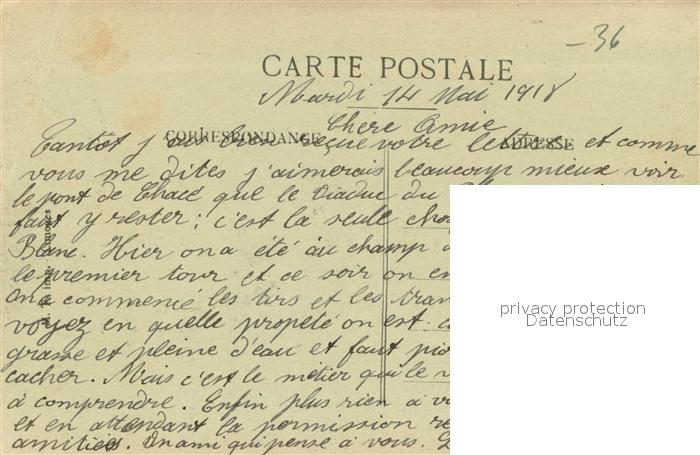 - 36
CARTE POSTALE
Mardi 14 Mai 1918
CORRESPONDANCE
ADRESSE
Chere Amie
Tantôt j'ai bien reçue votre lettre et comme
vous me dites j'aimerais beaucoup mieux voir
le pont de que le Viaduc du
faut y rester ; c'est la seule
Blanc. Hier on a été au champ
le premier tour et ce soir on
on a commencé les tirs et les
voyez en quelle propeté on est
grasse et pleine d'eau et faut
cacher. Mais c'est le métier qui le
à comprendre. Enfin plus rien à
et en attendant la permission
amitiés. Un ami qui pense à vous.
privacy protection
Datenschutz